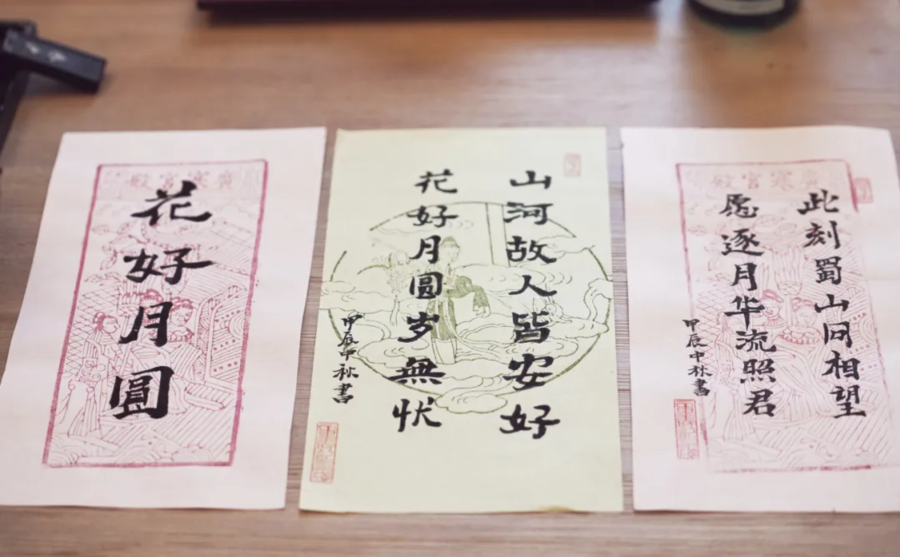 廣寒宮殿
花好月圓
山河故人皆安好
花好月圓岁無忧
甲辰中秋書
廣寒宮殿
此刻蜀山同相望
愿逐月华流照君
甲辰中秋書